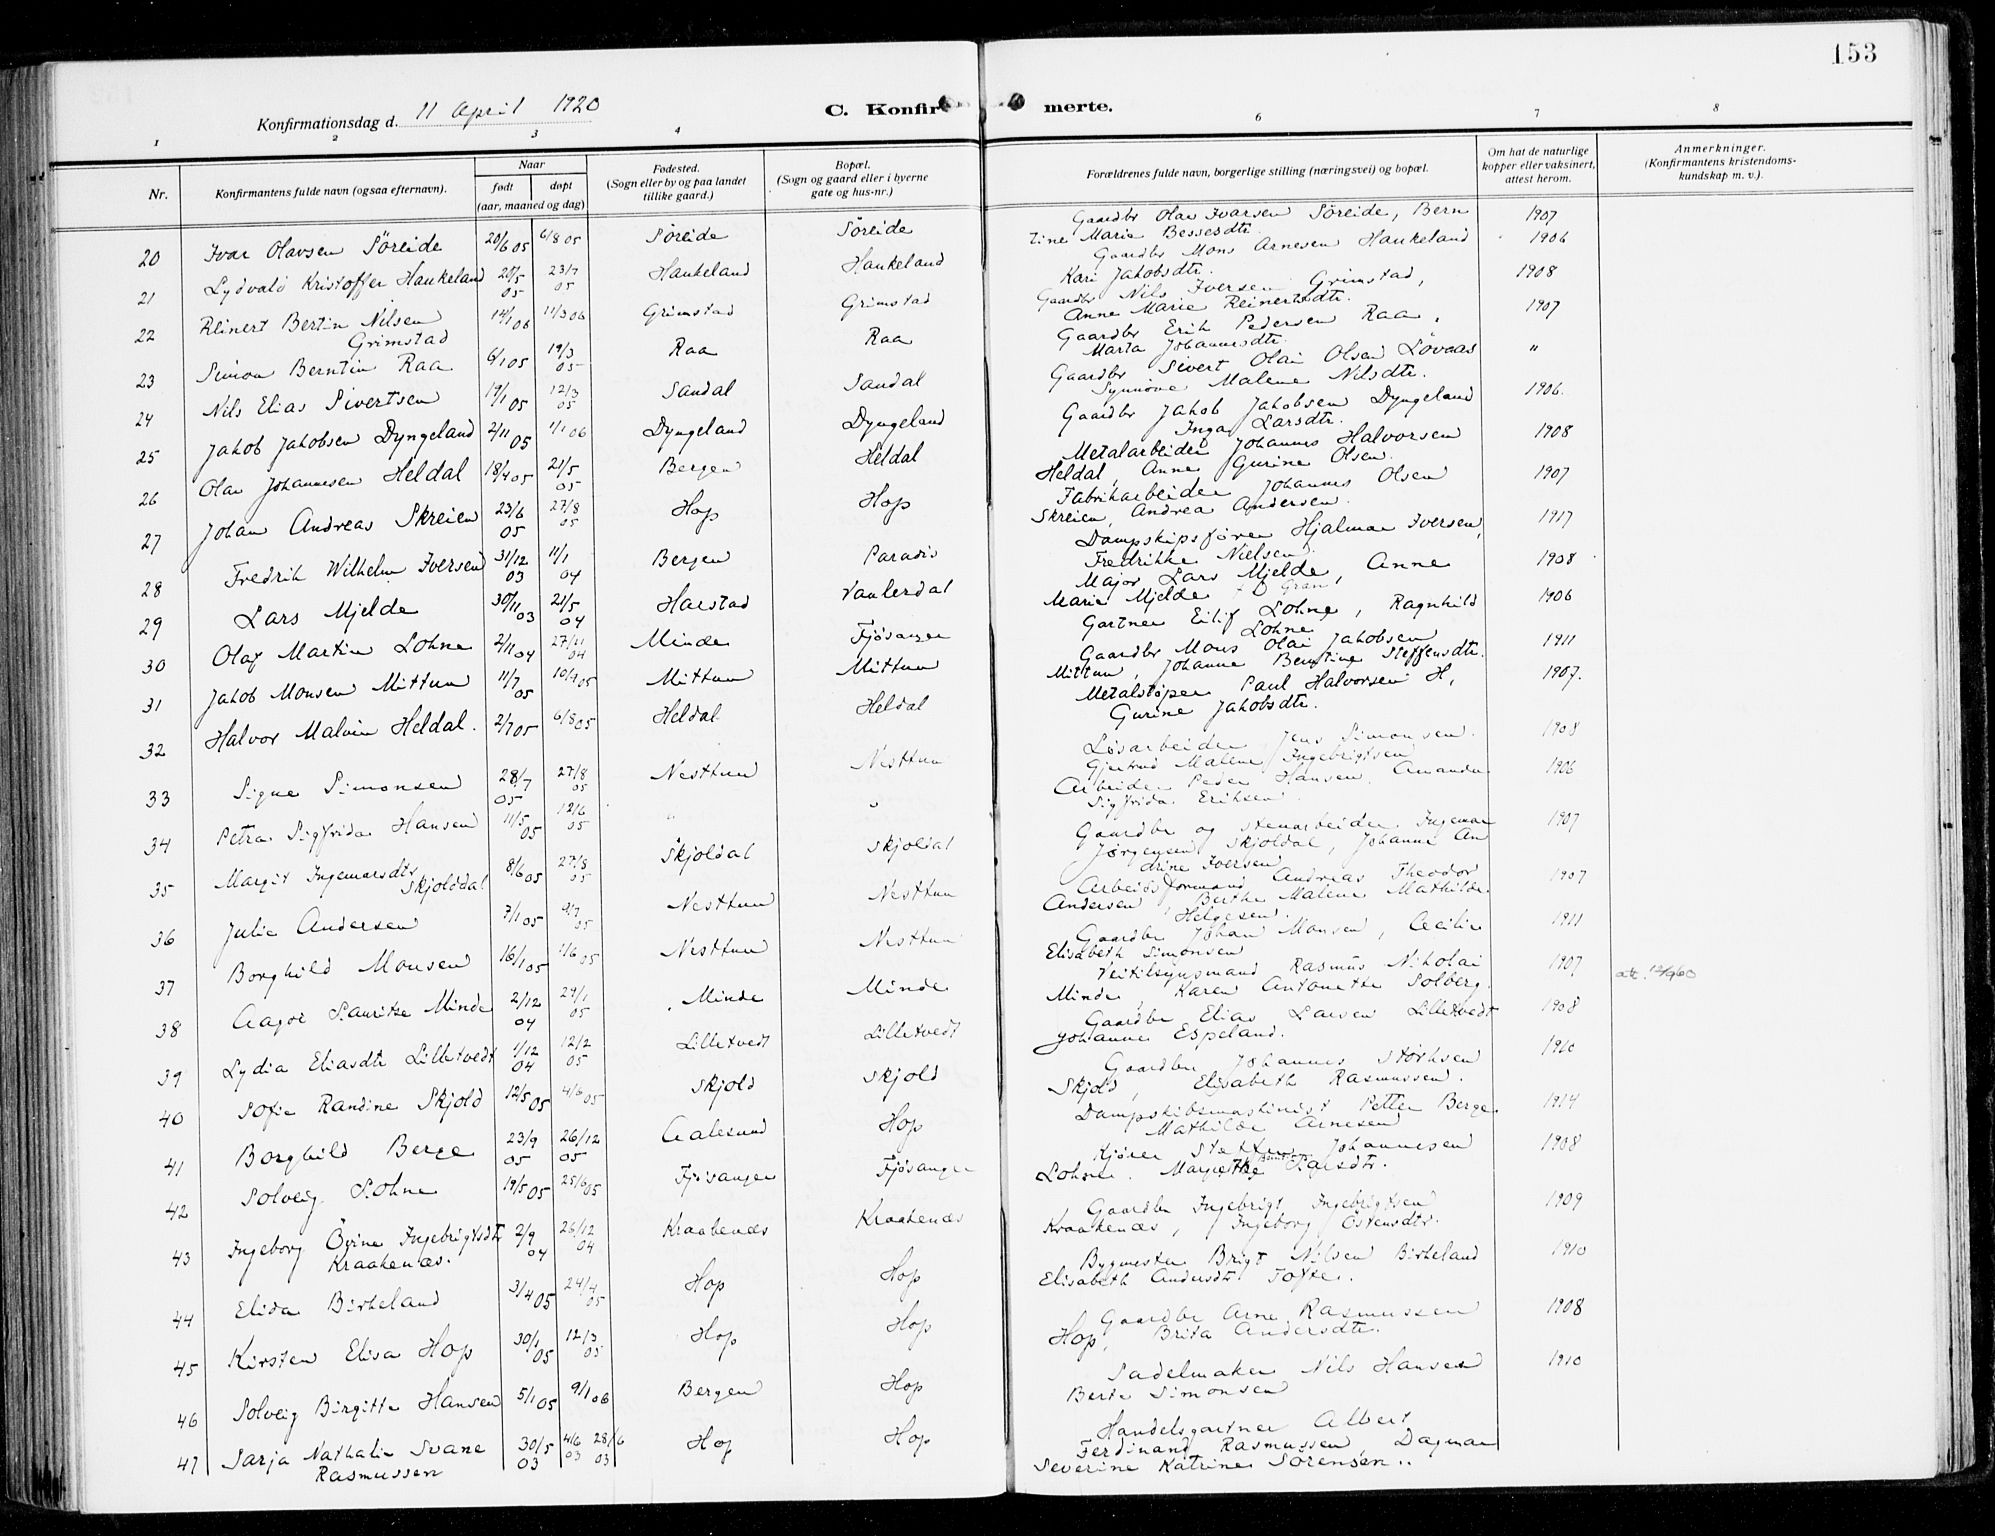 153
Konfirmationsdag d. 11 April 1920
C. Konfirmerte.
1 2 3 4 6 7 8
Nr.
Konfirmantens fulde navn (ogsaa efternavn).
Naar
født døpt
(aar, maaned og dag)
Fødested.
(Sogn eller by og paa landet
tillike gaard.)
Bopæl.
(Sogn og gaard eller i byerne
gate og hus-nr.)
Forældrenes fulde navn, borgerlige stilling (næringsvei) og bopæl.
Om hat de naturlige
kopper eller vaksinert,
attest herom.
Anmerkninger.
(Konfirmantens kristendoms-
kundskap m. v.).
20 Ivar Olavsen Söreide 20/6 05 6/8 05 Söreide Söreide Gaardbr Olav Ivarsen Söreide, Bern 1907
tine Marie Bessesdtr.
21 Lydvald Kristoffer Haukeland 20/5 05 23/7 05 Haukeland Haukeland Gaardbr Mons Arnesen Haukeland 1906
Kari Jakobsdtr.
22 Reinert Bertin Nilsen 14/1 06 11/3 06 Grimstad Grimstad Gaardbr Nils Iversen Grimstad, 1908
Grimstad Anne Marie Reinertsdtr.
23 Simon Berntin Raa 6/1 05 19/3 05 Raa Raa Gaardbr Erik Pedersen Raa, 1907
Marta Johannesdtr.
24 Nils Elias Sivertsen 19/1 05 12/3 05 Sandal Sandal Gaardbr Sivert Olai Olsen Lövaas "
Synnöve Malene Nilsdtr.
25 Jakob Jakobsen Dyngeland 2/11 05 1/1 06 Dyngeland Dyngeland Gaardbr Jakob Jakobsen Dyngeland 1906.
Inga Larsdtr.
26 Olav Johannesen Heldal 18/4 05 21/5 05 Bergen Heldal Metalarbeider Johannes Halvorsen 1908
Heldal, Anne Gurine Olsen.
27 Johan Andreas Skreien 23/6 05 27/8 05 Hop Hop Fabrikarbeider Johannes Olsen 1907
Skreien, Andrea Andersen.
28 Fredrik Wilhelm Iversen 31/12 03 11/1 04 Bergen Paradis Dampskipsförer Hjalmar Iversen, 1917
Fredrikke Nielsen.
29 Lars Mjelde 30/11 03 21/5 04 Harstad Major Lars Mjelde, Anne 1908
Marie Mjelde f D Gran
30 Olaf Martin Lohne 2/11 04 27/11 04 Minde Fjösanger Gartner Eilif Lohne, Ragnhild 1906
Lohne
31 Jakob Monsen Mittun 11/7 05 10/9 05 Mittun Mittun Gaardbr Mons Olai Jakobsen 1911
Mittun, Johanne Bentine Steffensdtr.
32 Halvor Malvin Heldal. 2/7 05 6/8 05 Heldal Heldal Metalstöper Paul Halvorsen H, 1907.
Gurine Jakobsdtr.
33 Signe Simonsen 28/7 05 27/8 05 Nesttun Nesttun Lösarbeider Jens Simonsen. 1908
Gjertrud Malene Ingebrigtsen
34 Petra Sigfrida Hansen 11/5 05 12/6 05 " " Arbeider Peder Hansen. Amanda 1906
Sigfrida Eriksen.
35 Margit Ingemarsdtr 8/6 05 27/8 05 Skjoldal Skjoldal Gaardbr og stenarbeider Ingemar 1907
Skjolddal Jørgensen Skjoldal, Johanne An
drine Iversen
36 Julie Andersen 7/1 05 9/7 05 Nesttun Nesttun Arbeidsformand Andreas Theodor 1907
Andersen, Berthe Malene Mathilde
Helgesen.
37 Borghild Monsen 16/1 05 1/6 05 Nesttun Nesttun Gaardbr Johan Monsen, Cecilie 1911
Elisabeth Simonsen
38 Aagot Lauritze Minde 2/12 04 29/1 05 Minde Minde Veitilsynsmand Rasmus Nikolai 1907
Minde, Karen Antonette Solberg.
39 Lydia Eliasdtr Lilletvedt 1/12 04 12/2 05 Lilletvedt Lilletvedt Gaardbr Elias Larsen Lilletvedt 1908
Johanne Espeland.
40 Sofie Randine Skjold 12/5 05 4/6 05 Skjold Skjold Gaardbr Johannes Störksen 1910
Skjold, Elisabeth Rasmussen.
41 Borghild Berge 23/9 05 26/12 05 Aalesund Hop Dampskibsmaskinist Petter Berge 1914
Mathilde Arnesen
42 Solveig Lohne 19/5 05 25/6 05 Fjösanger Fjösanger Kjörer Steffen Johannesen 1908
Lohne. Margrethe Larsdtr.
43 Ingeborg Övine Ingebrigtsdtr 2/9 04 26/12 04 Kraakenæs Kraakenæs Gaardbr Ingebrigt Ingebrigtsen 1909
Kraakenæs. Kraakenæs, Ingeborg Östensdtr.
44 Elida Birkeland 3/4 05 24/4 05 Hop Hop Bygmester Brigt Nilsen Birkeland 1910
Elisabeth Andersdtr Tofte.
45 Kirsten Elisa Hop 30/1 05 12/3 05 Hop Hop Gaardbr Arne Rasmussen 1908
Hop, Brita Andersdtr.
46 Solveig Birgitte Hansen 5/1 05 9/1 06 Bergen Hop Sadelmaker Nils Hansen 1910
Berte Simonsen
47 Sarja Nathalie Svane 30/5 03 4/6 03 28/6 03 Hop Hop Handelsgartner Albert
Rasmussen Ferdinand Rasmussen, Dagmar
Severine Katrine Sörensen..